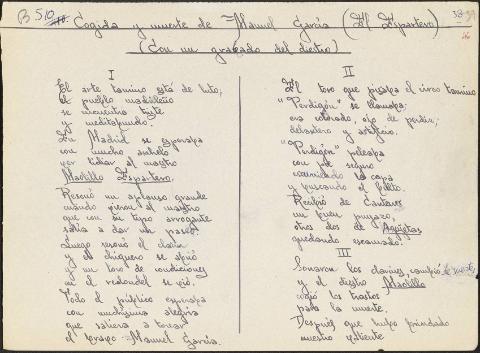 B 510
38-39
Cogida y muerte de Manuel García (El Espartero)
(Con un grabado del diestro)
I
El arte taurino está de luto;
el pueblo madrileño
se encuentra triste
y meditabundo.
En Madrid se esperaba
con mucho anhelo
ver lidiar al maestro
Maolillo Espartero.
Resonó un aplauso grande
cuando vieron al maestro
que con su tipo arrogante
salía a dar un paseo.
Luego resonó el clarín
y el chiquero se abrió
y un toro de condiciones
en el redondel se vió.
Todo el público esperaba
con muchísima alegría
que saliera a torear
el guapo Manuel García.
II
El toro que pisaba el circo taurino
"Perdigón" se llamaba;
era colorado, ojo de perdiz;
delantero y astifino.
"Perdigón" peleaba
con pie seguro
recorriendo la capa
y buscando el bulto.
Recibió de Cantares
un buen puyazo;
otros dos de Agujetas
quedando escamado.
III
Sonaron los clarines, cambió de suerte
y el diestro Maolillo
cogió los trastos
para la muerte.
Después que hubo brindado
nuestro valiente